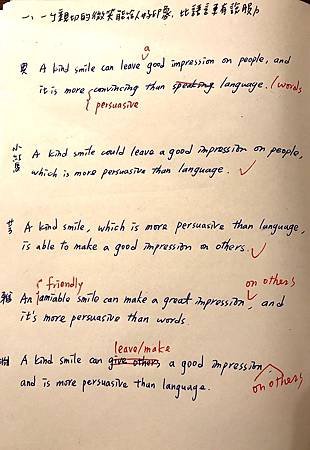 一、一個親切的微笑能給人好印象，比語言更有說服力
a
男 A kind smile can leave good impression on people, and
it is more convincing than speaking language. (words
persuasive
A kind smile could leave a good impression on people,
which is more persuasive than language.
芳 A kind smile, which is more persuasive than language,
is able to make a good impression on others.
friendly on others
An amiable smile can make a great impression, and
it's more persuasive than words.
leave/make
A kind smile can give others a good impression
and is more persuasive than language. on others